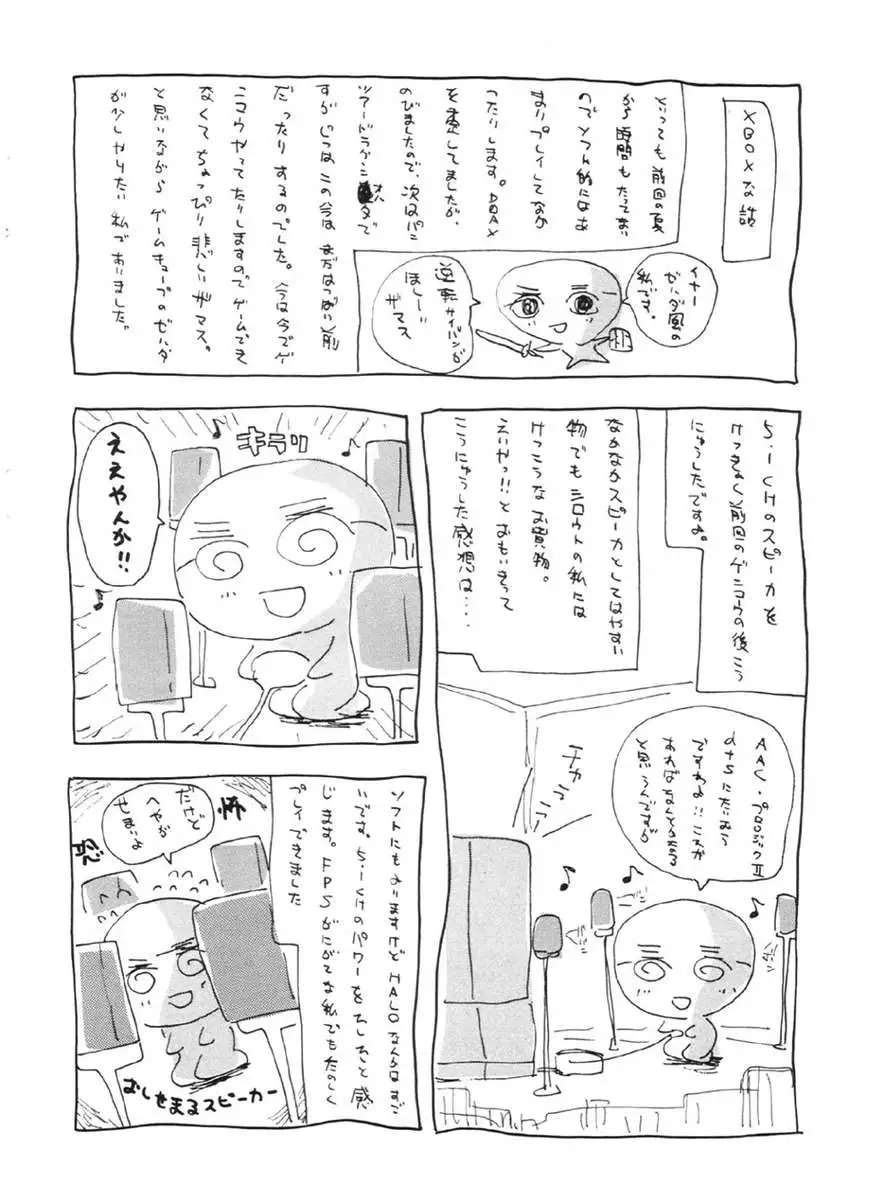 XBOXな話
とっても前回の夏
から時間もたってない
のでソフト的にはあ
まりプレイしてなか
ったりします。DOAX
を楽ししてましたが、
のびましたので、次はパン
ツァードラグーンオルタで
すがじつはこの今は まだはつばい前
だったりするのでした。今は今でゲ
ンコウやってたりしますのでゲームでき
なくてちょっぴり悲しいザマス。
と思いながらゲームキューブのゼルダ
が少しやりたい私でありました。
イナー
ゼルダ風の
私です。
逆転サイバンが
ほしーー
ザマス
5.1CHのスピーカを
けっきょく前回のゲンコウの後こう
にゅうしたですよ。
なかなかスピーカとしてはやすい
物でもシロウトの私には
けっこうなお買物。
えいやっ!!とおもいきって
こうにゅうした感想は・・・・
AAC・プロロジックⅡ
dtsにたいおう
ですわよ!!これが
あればなんとかなる
と思うんですが
チャララ
キラリ
ええやんか!!
ソフトにもよりますけどHALOなんかはすご
いです。5.1CHのパワーをひしひしと感
じます。FPSがにがてな私でもたのしく
プレイできました
だけど
へやが
せまいよ
怖
おしせまるスピーカー